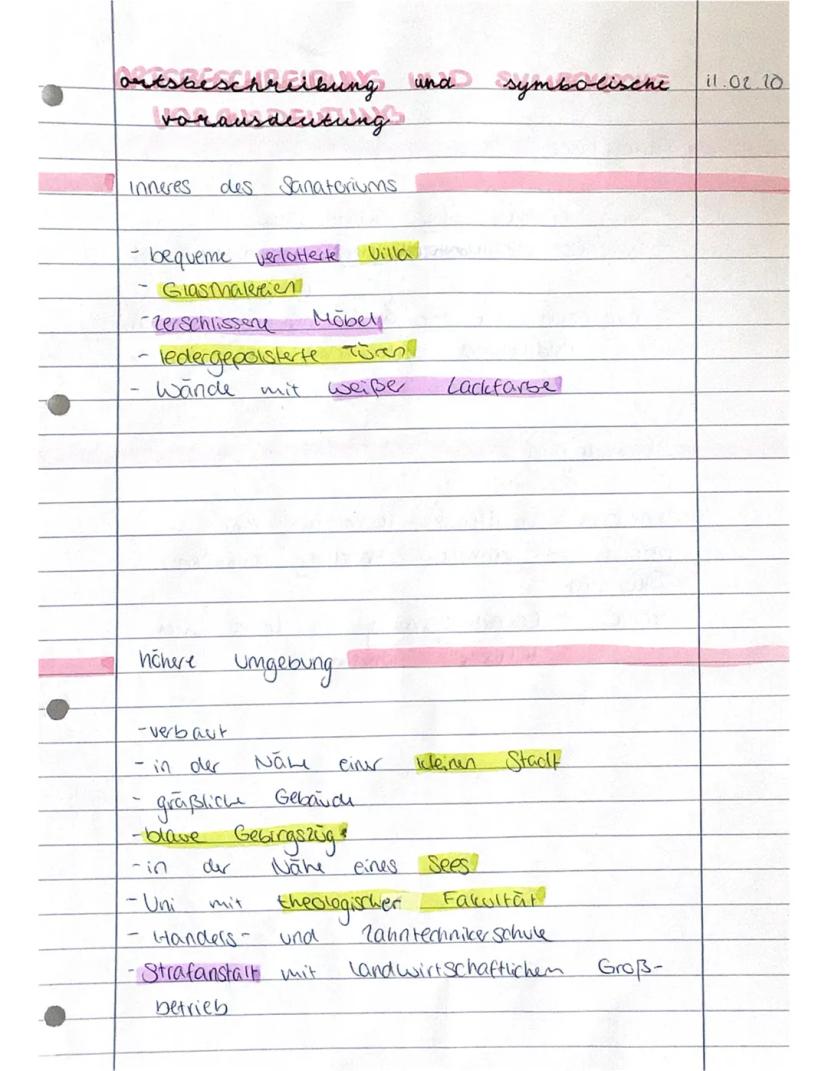 ortsbeschreibung und symbolische 11.02.20
vorausdeutung
Inneres des Sanatoriums
- bequeme verlotterte Villa
- Glasmalereien
- zerschlissene Möbel
- ledergepolsterte Türen
- Wände mit weißer Lackfarbe
nähere Umgebung
- verbaut
- in der Nähe einer kleinen Stadt
- gräßliche Gebäude
- blaue Gebirgszüge
- in der Nähe eines Sees
- Uni mit theologischer Fakultät
- Handels- und Zahntechnikerschule
- Strafanstalt mit landwirtschaftlichem Groß-
betrieb